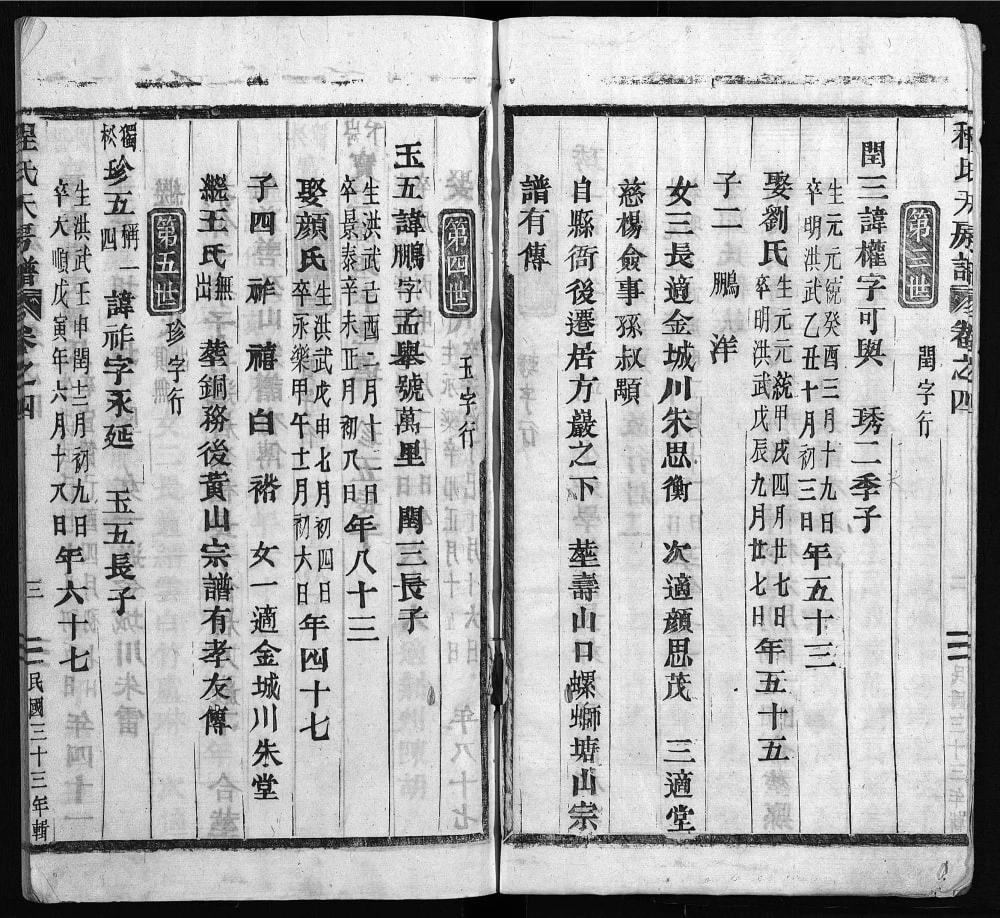 程氏大房譜 卷之四
第三世 閏字行
閏三諱權字可與 琇二季子
生元元統癸酉三月十九日
卒明洪武乙丑十月初三日
年五十三
娶劉氏
生元元統甲戌四月廿七日
卒明洪武戊辰九月廿七日
年五十五
子二 鵬 洋
女三長適金城川朱思衡 次適顏思茂 三適堂
慈楊僉事孫叔顒
自縣衙後遷居方巖之下 塟壽山口螺螄塘山宗
譜有傳
民國三十三年輯
第四世 玉字行
玉五諱鵬字孟舉號萬里 閏三長子
生洪武己酉二月十二日
卒景泰辛未正月初八日
年八十三
娶顏氏
生洪武戊申七月初四日
卒永樂甲午十二月初六日
年四十七
子四 祚 禧 白 裕 女一適金城川朱堂
繼王氏
無出
塟銅務後黃山宗譜有孝友傳
第五世 珍字行
獨松
珍五
一稱四
諱祚字永延 玉五長子
生洪武壬申閏十二月初九日
卒天順戊寅年六月十八日
年六十七
程氏大房譜 卷之四
三
民國三十三年輯